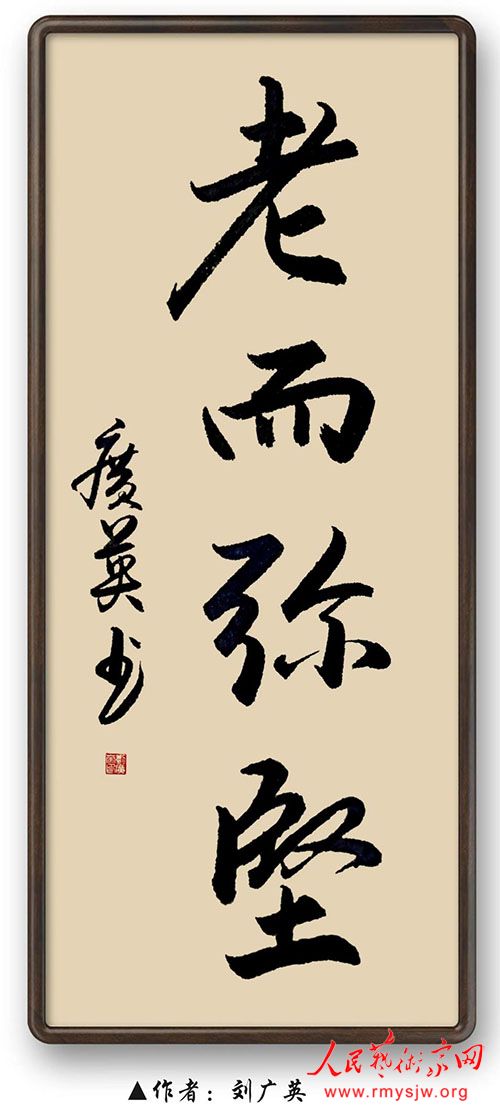 老而弥堅
廣英书
人民藝術家网
www.rmysjw.org
▲作者：刘广英